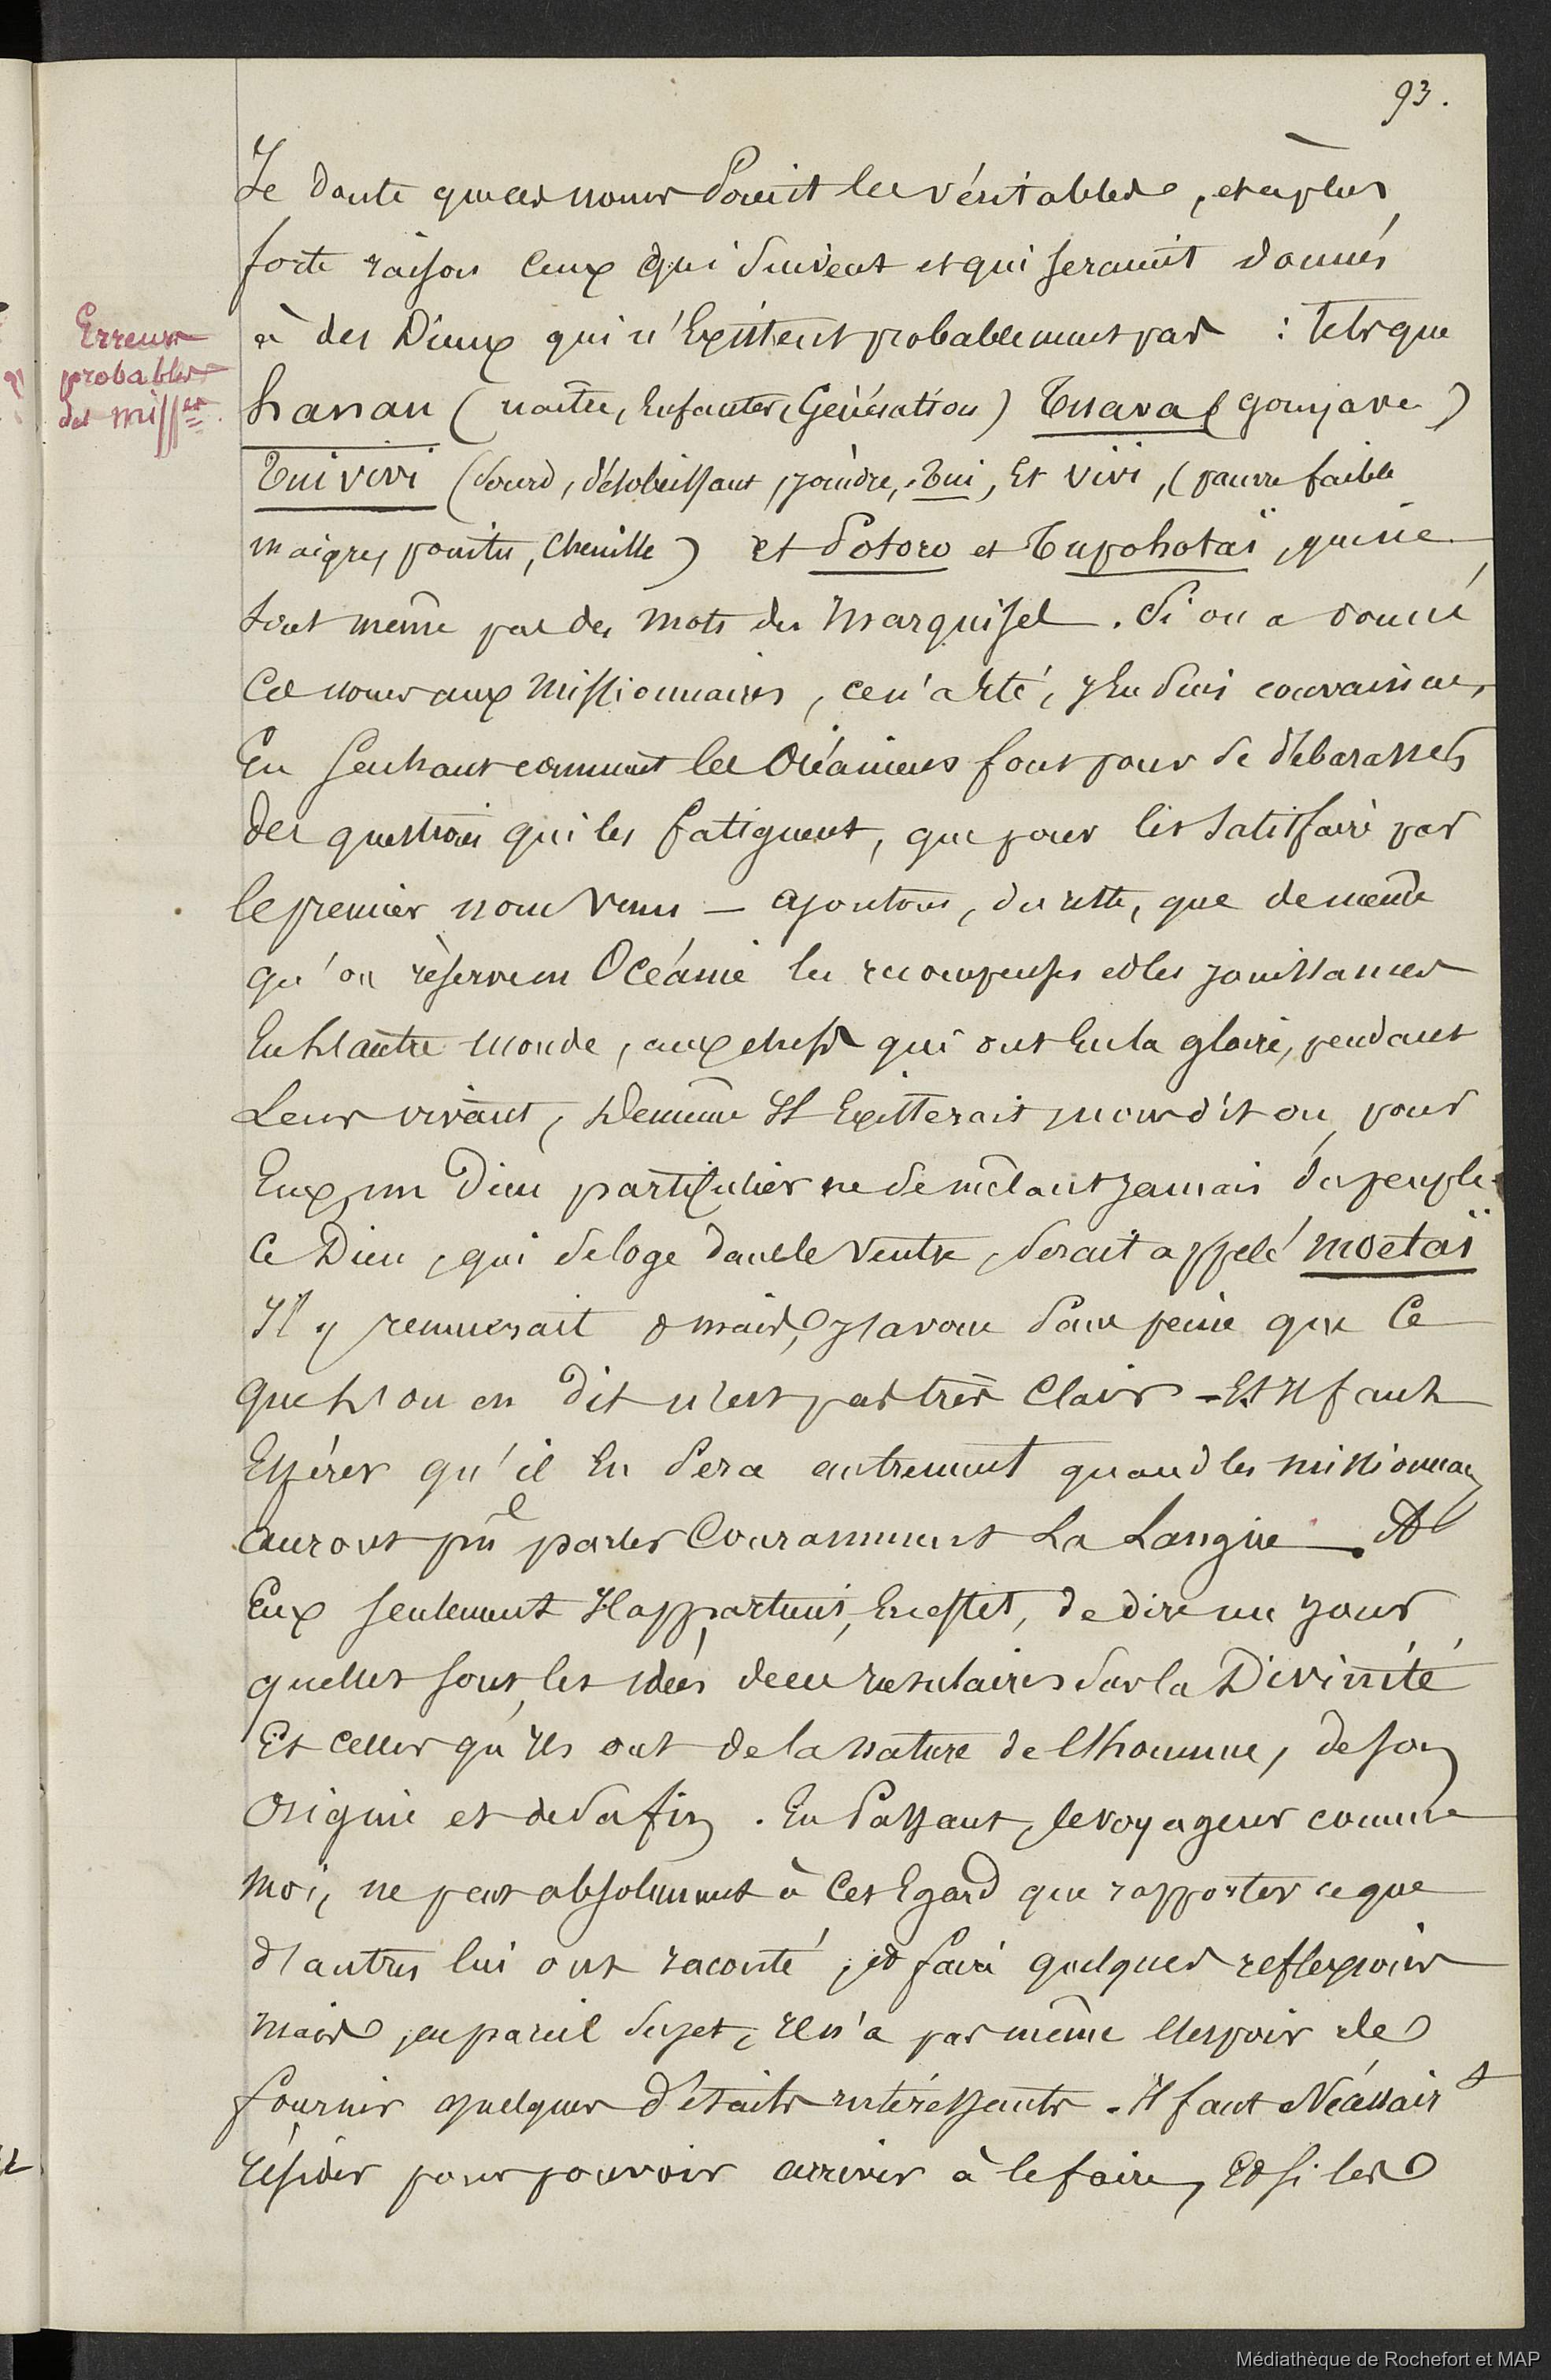 93.
Je doute que ces noms soient les véritables, et à plus
forte raison ceux qui suivent et qui seraient donnés
à des Dieux qui n'Existent probablement pas : tels que
Erreurs
probables
des miss.res
hanau (naître, Enfanter, Génération) Tuava (gouyave)
Tuivivi (sourd, désobéissant, joindre, Tui, Et vivi, (pauvre faible
maigre, pointu, Chenille) et Potoro et Tupohotaï, qui ne
sont même pas des mots des Marquises. Si on a donné
Ces noms aux Missionnaires, ce n'a été, j'En suis convaincu,
En sachant comment les Océaniens font pour se débarasser
des questions qui les fatiguent, que pour les satisfaire par
le premier nom venu — ajoutons, du reste, que de même
qu'on réserve en Océanie les recompenses et les jouissances
En l'autre monde, aux chefs qui ont Eu la gloire, pendant
Leur vivant, de même Il Existerait pour dit on, pour
Eux, un Dieu particulier ne se mêlant jamais du peuple.
Ce Dieu, qui se loge dans le Ventre, serait appelé moetaï
Il y remuerait mais, j'avoue sans peine que Ce
que l'on en dit n'est pas très Clair - Et Il faut
Espérer qu'il En sera autrement quand les missionnaires
auront pu parler Couramment La Langue. A
Eux seulement Il appartient, En effet, de dire un jour
quelles sont les idées de ces insulaires sur la Divinité
Et celles qu'Ils ont de la nature de l'homme, de son
Origine et de sa fin. En Passant, le voyageur comme
moi, ne peut absolument à Cet Egard que rapporter ce que
d'autres lui ont raconté, et faire quelques reflexions
mais, en pareil sujet, Il n'a pas même l'Espoir de
fournir quelques détails intéressants. Il faut Nécessair.t
résider pour pouvoir arriver à le faire, Et si les
Médiathèque de Rochefort et MAP